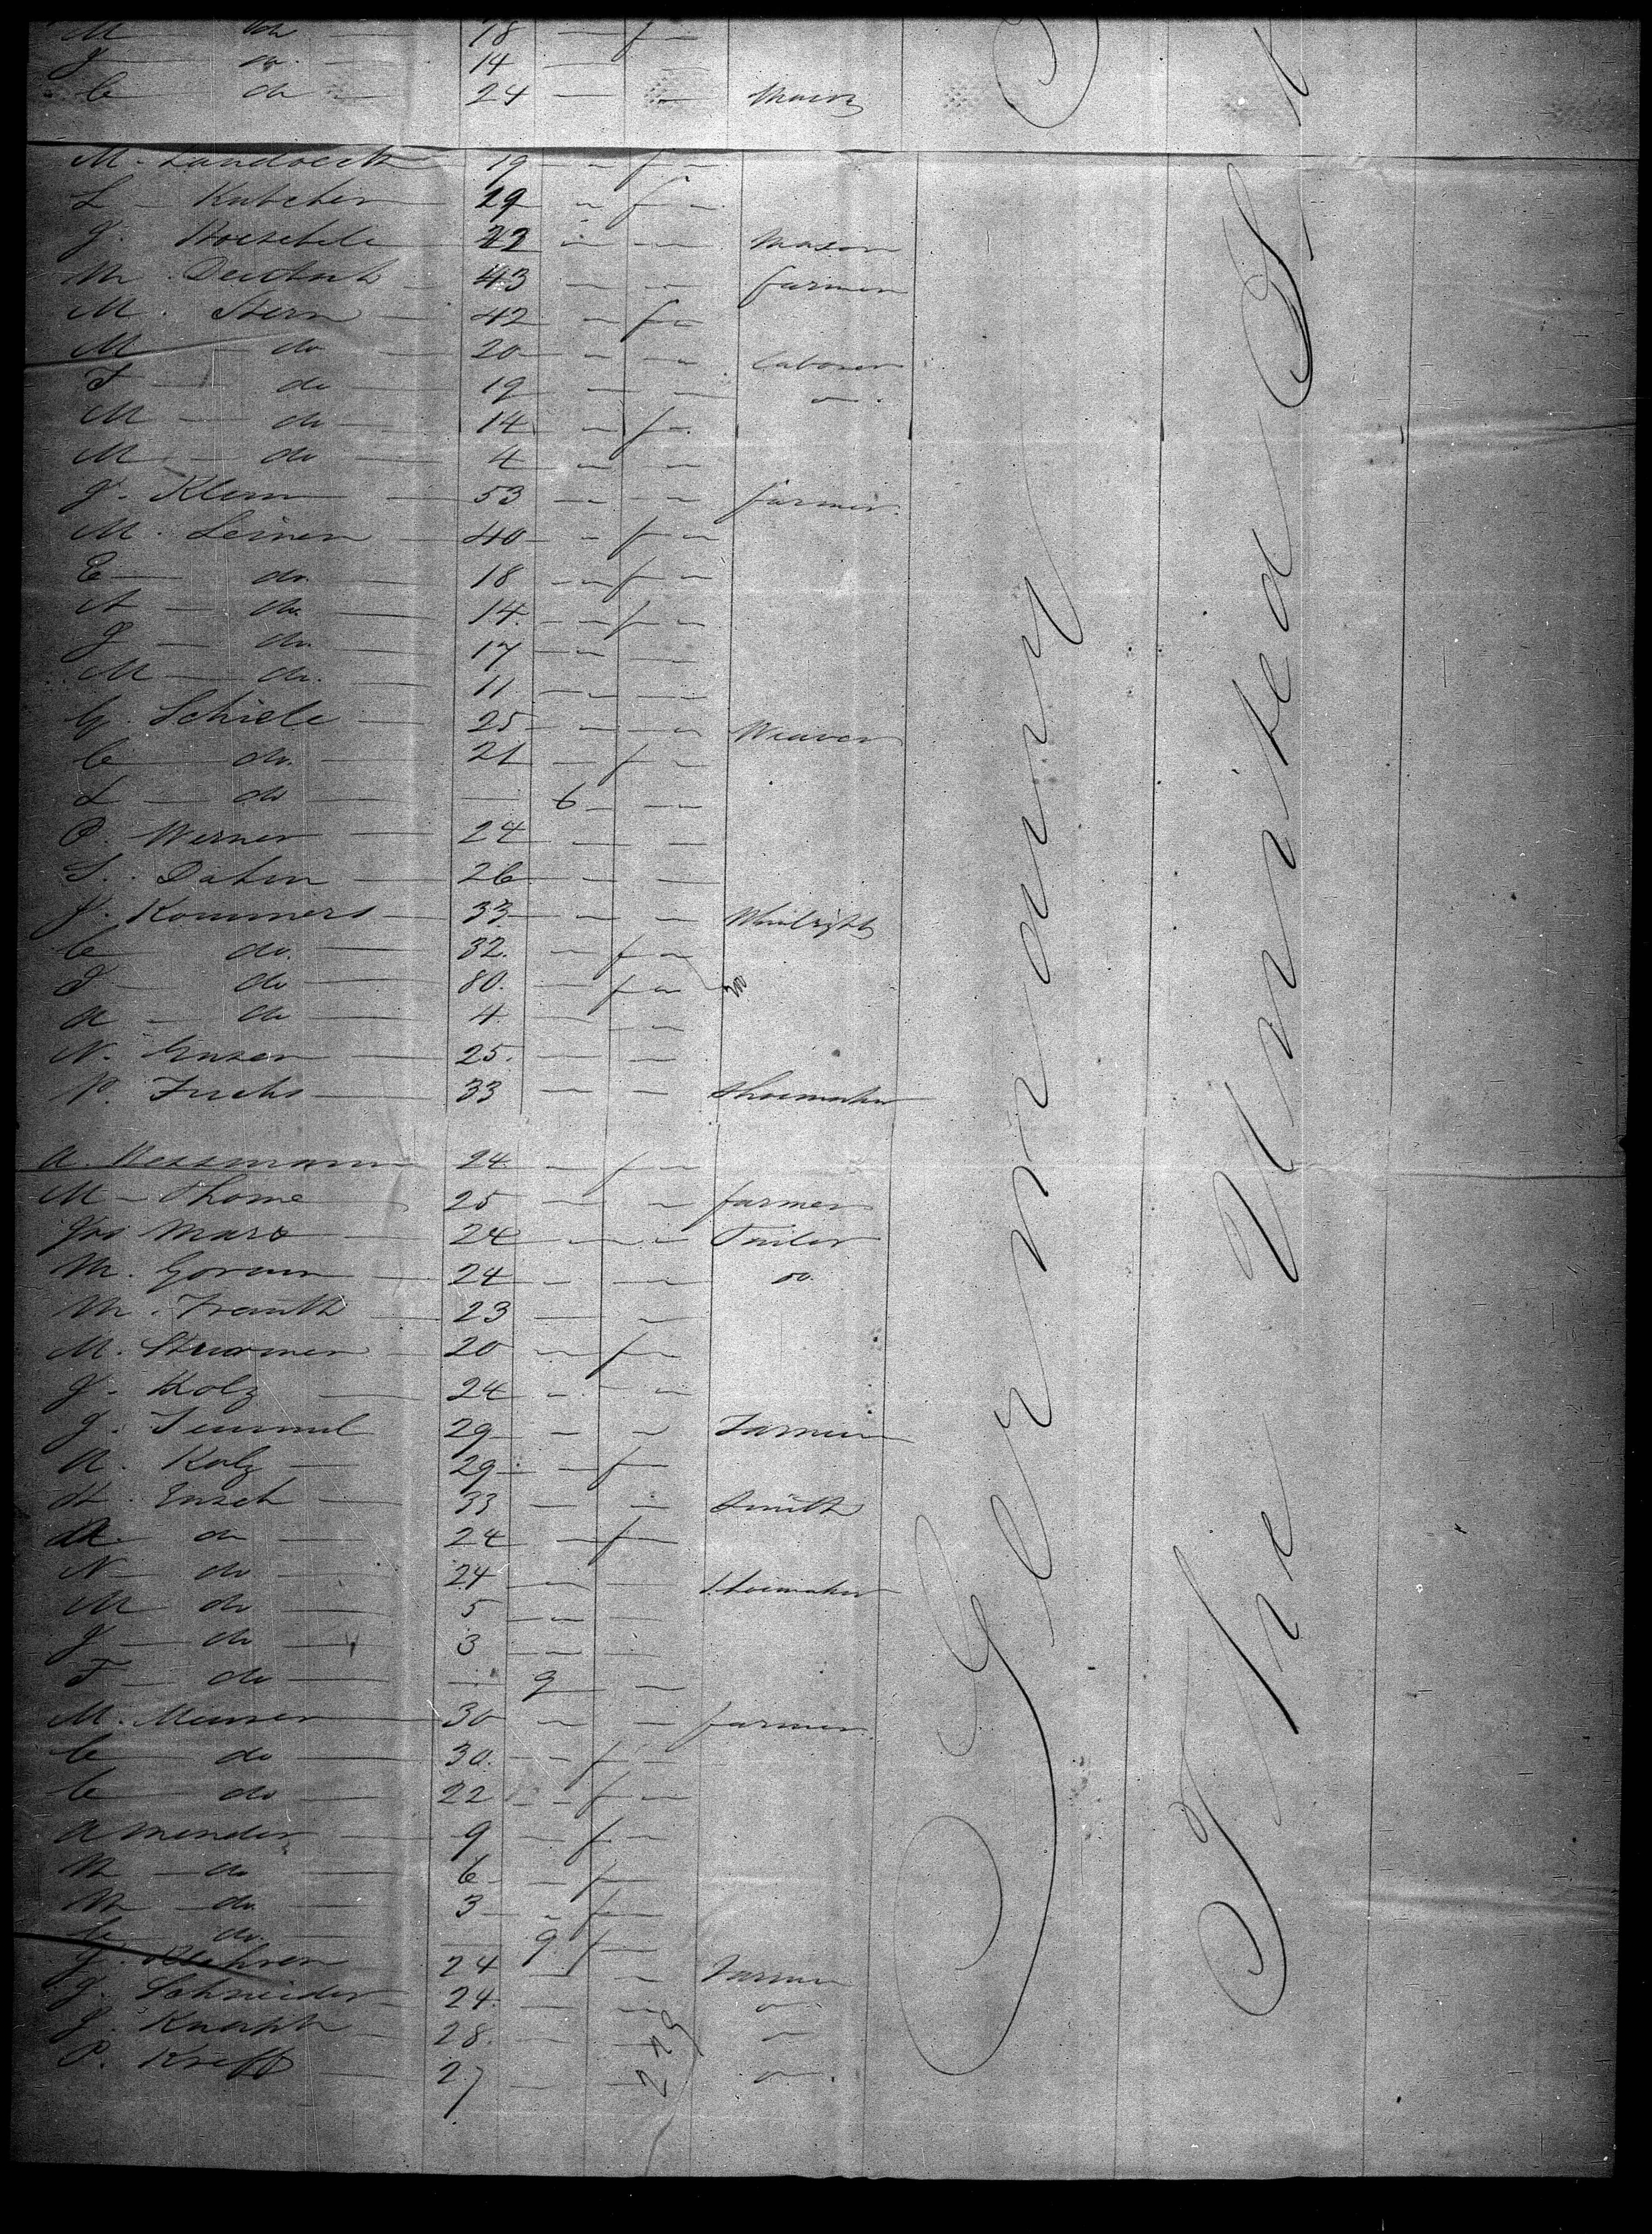 M do 18 — f —
J do 14 — —
C do 24 — — Mason
M. Landvecth 19 — f —
L — Kutcher 29 — f —
J. 22 — — Mason
M. Deutsch 43 — — farmer
M. Stern 42 — f —
M — do 20 — — laborer
F — do 19 — — do
M — do 14 — f —
M — do 4 — —
J. Klem 53 — — farmer
M. Leinen 40 — f —
E — do 18 — f —
A — do 14 — f —
J — do 17 — —
M — do 11 — —
G. Schiele 25 — — Weaver
C — do 21 — f —
L — do — 6 — —
P. Werner 24 — —
S. Datin 26 — —
J. Kommers 33 — — Whelright
C do 32 — f —
S — do 80 — f —
A — do 4 — —
N. 25 — —
P. Fuchs 33 — — Shoemaker
A. Wessmann 24 — f —
M — Thome 25 — — farmer
Jos Marx 24 — — Tailor
M. 24 — — do
M. Frauth 23 — —
M. Sturmer 20 — f —
J. Kolz 24 — —
J. 29 — — Farmer
A. Kolz 29 — f —
H. Ensch 33 — — Smith
A. do 24 — f —
N — do 24 — — Shoemaker
M do 5 — —
J — do 3 — —
F — do — 9 — —
M. Meuser 30 — — farmer
C do 30 — f —
C — do 22 — f —
A Mender 9 — f —
M — do 6 — f —
M — do 3 — f —
C — do — 9 f —
J. 24 — — Farmer
J. Schneider 24 — — do
J. Knapp 28 — — do
P. Kreff 27 — — do
219
Germany
The United S